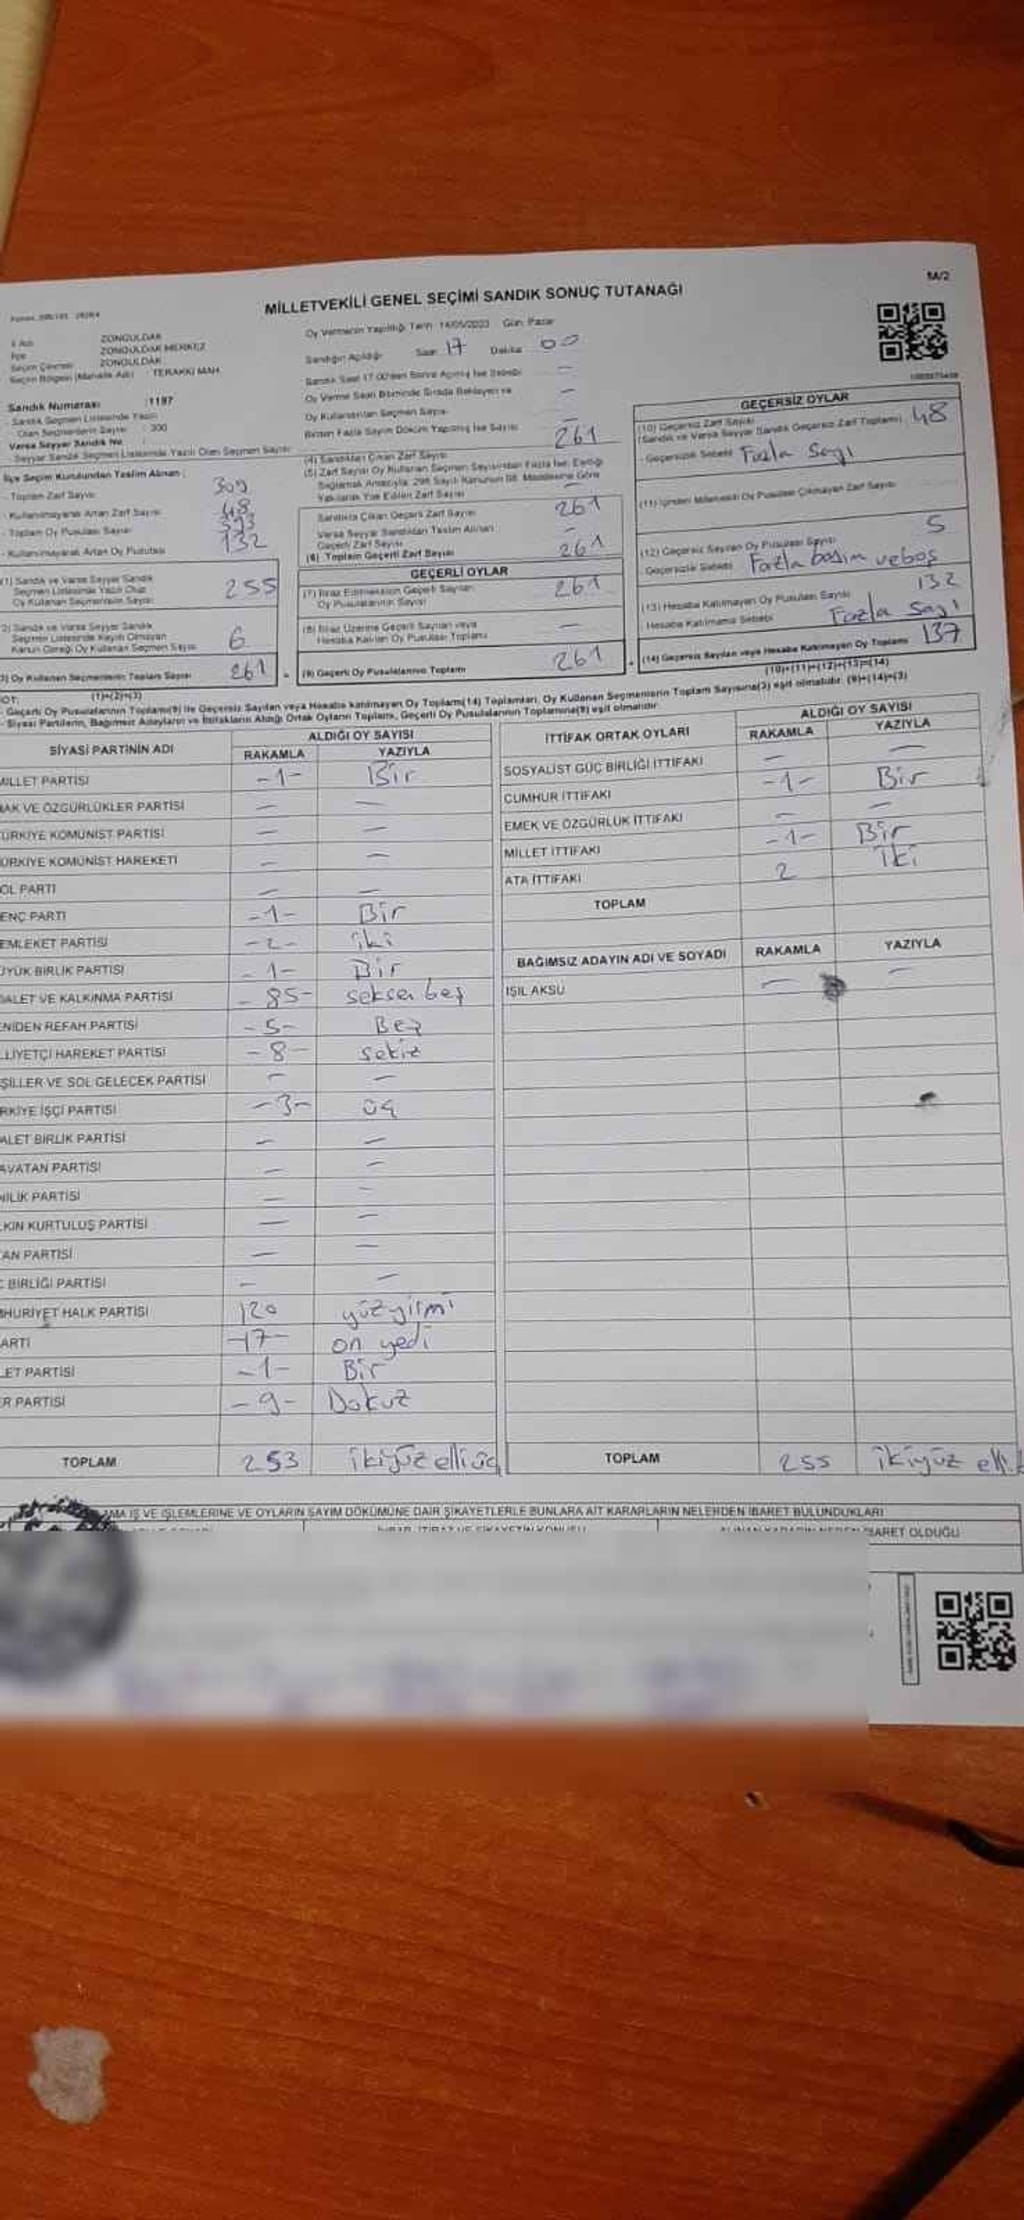 M/2
MİLLETVEKİLİ GENEL SEÇİMİ SANDIK SONUÇ TUTANAĞI
Oy Vermenin Yapıldığı Tarih: 14/05/2023 Gün: Pazar
ZONGULDAK
ZONGULDAK MERKEZ
ZONGULDAK
Seçim Bölgesi (Mahalle Adı) TERAKKİ MAH.
Sandığın Açıldığı Saat 17 Dakika 00
Sandık Numarası :1197
Sandık Seçmen Listesinde Yazılı
Olan Seçmenlerin Sayısı : 300
Varsa Seyyar Sandık No :
İlçe Seçim Kurulundan Teslim Alınan :
- Toplam Zarf Sayısı 309
- Kullanılmayarak Artan Zarf Sayısı 48
- Toplam Oy Pusulası Sayısı 393
- Kullanılmayarak Artan Oy Pusulası 132
(1) Sandık ve Varsa Seyyar Sandık
Seçmen Listesinde Yazılı Olup
Oy Kullanan Seçmenlerin Sayısı 255
(2) Sandık ve Varsa Seyyar Sandık
Seçmen Listesinde Kayıtlı Olmayan
Kanun Gereği Oy Kullanan Seçmen Sayısı 6
(3) Oy Kullanan Seçmenlerin Toplam Sayısı 261
(1)+(2)=(3)
(4) Sandıktan Çıkan Zarf Sayısı 261
Sandıkta Çıkan Geçerli Zarf Sayısı 261
Varsa Seyyar Sandıktan Teslim Alınan
Geçerli Zarf Sayısı —
(6) Toplam Geçerli Zarf Sayısı 261
GEÇERLİ OYLAR
(7) İtiraz Edilmeksizin Geçerli Sayılan
Oy Pusulalarının Sayısı 261
(8) İtiraz Üzerine Geçerli Sayılan veya
Hesaba Katılan Oy Pusulası Toplamı —
(9) Geçerli Oy Pusulalarının Toplamı 261
GEÇERSİZ OYLAR
(10) Geçersiz Zarf Sayısı
(Sandık ve Varsa Seyyar Sandık Geçersiz Zarf Toplamı) 48
Geçersizlik Sebebi Fazla Sayı
(11) İçinden Milletvekili Oy Pusulası Çıkmayan Zarf Sayısı
(12) Geçersiz Sayılan Oy Pusulası Sayısı 5
Geçersizlik Sebebi Fazla basım ve boş
(13) Hesaba Katılmayan Oy Pusulası Sayısı 132
Hesaba Katılmama Sebebi Fazla Sayı
(14) Geçersiz Sayılan veya Hesaba Katılmayan Oy Toplamı 137
(10)+(11)+(12)+(13)=(14)
- Geçerli Oy Pusulalarının Toplamı(9) ile Geçersiz Sayılan veya Hesaba katılmayan Oy Toplamı(14) Toplamları, Oy Kullanan Seçmenlerin Toplam Sayısına(3) eşit olmalıdır. (9)+(14)=(3)
- Siyasi Partilerin, Bağımsız Adayların ve İttifakların Aldığı Ortak Oyların Toplamı, Geçerli Oy Pusulalarının Toplamına(9) eşit olmalıdır.
SİYASİ PARTİNİN ADI ALDIĞI OY SAYISI
RAKAMLA YAZIYLA
MİLLET PARTİSİ -1- Bir
HAK VE ÖZGÜRLÜKLER PARTİSİ — —
TÜRKİYE KOMÜNİST PARTİSİ — —
TÜRKİYE KOMÜNİST HAREKETİ — —
SOL PARTİ — —
GENÇ PARTİ -1- Bir
MEMLEKET PARTİSİ -2- iki
BÜYÜK BİRLİK PARTİSİ -1- Bir
ADALET VE KALKINMA PARTİSİ -85- seksen beş
YENİDEN REFAH PARTİSİ -5- Beş
MİLLİYETÇİ HAREKET PARTİSİ -8- sekiz
YEŞİLLER VE SOL GELECEK PARTİSİ — —
TÜRKİYE İŞÇİ PARTİSİ -3- üç
ADALET BİRLİK PARTİSİ — —
ANAVATAN PARTİSİ — —
YENİLİK PARTİSİ — —
HALKIN KURTULUŞ PARTİSİ — —
VATAN PARTİSİ — —
GÜÇ BİRLİĞİ PARTİSİ — —
CUMHURİYET HALK PARTİSİ 120 yüz yirmi
İYİ PARTİ -17- on yedi
ADALET PARTİSİ -1- Bir
ZAFER PARTİSİ -9- Dokuz
TOPLAM 253 ikiyüz elli üç
İTTİFAK ORTAK OYLARI ALDIĞI OY SAYISI
RAKAMLA YAZIYLA
SOSYALİST GÜÇ BİRLİĞİ İTTİFAKI — —
CUMHUR İTTİFAKI -1- Bir
EMEK VE ÖZGÜRLÜK İTTİFAKI — —
MİLLET İTTİFAKI -1- Bir
ATA İTTİFAKI 2 iki
TOPLAM
BAĞIMSIZ ADAYIN ADI VE SOYADI RAKAMLA YAZIYLA
IŞIL AKSU — —
TOPLAM 255 ikiyüz
İŞ VE İŞLEMLERİNE VE OYLARIN SAYIM DÖKÜMÜNE DAİR ŞİKAYETLERLE BUNLARA AİT KARARLARIN NELERDEN İBARET BULUNDUKLARI
İBARET OLDUĞU